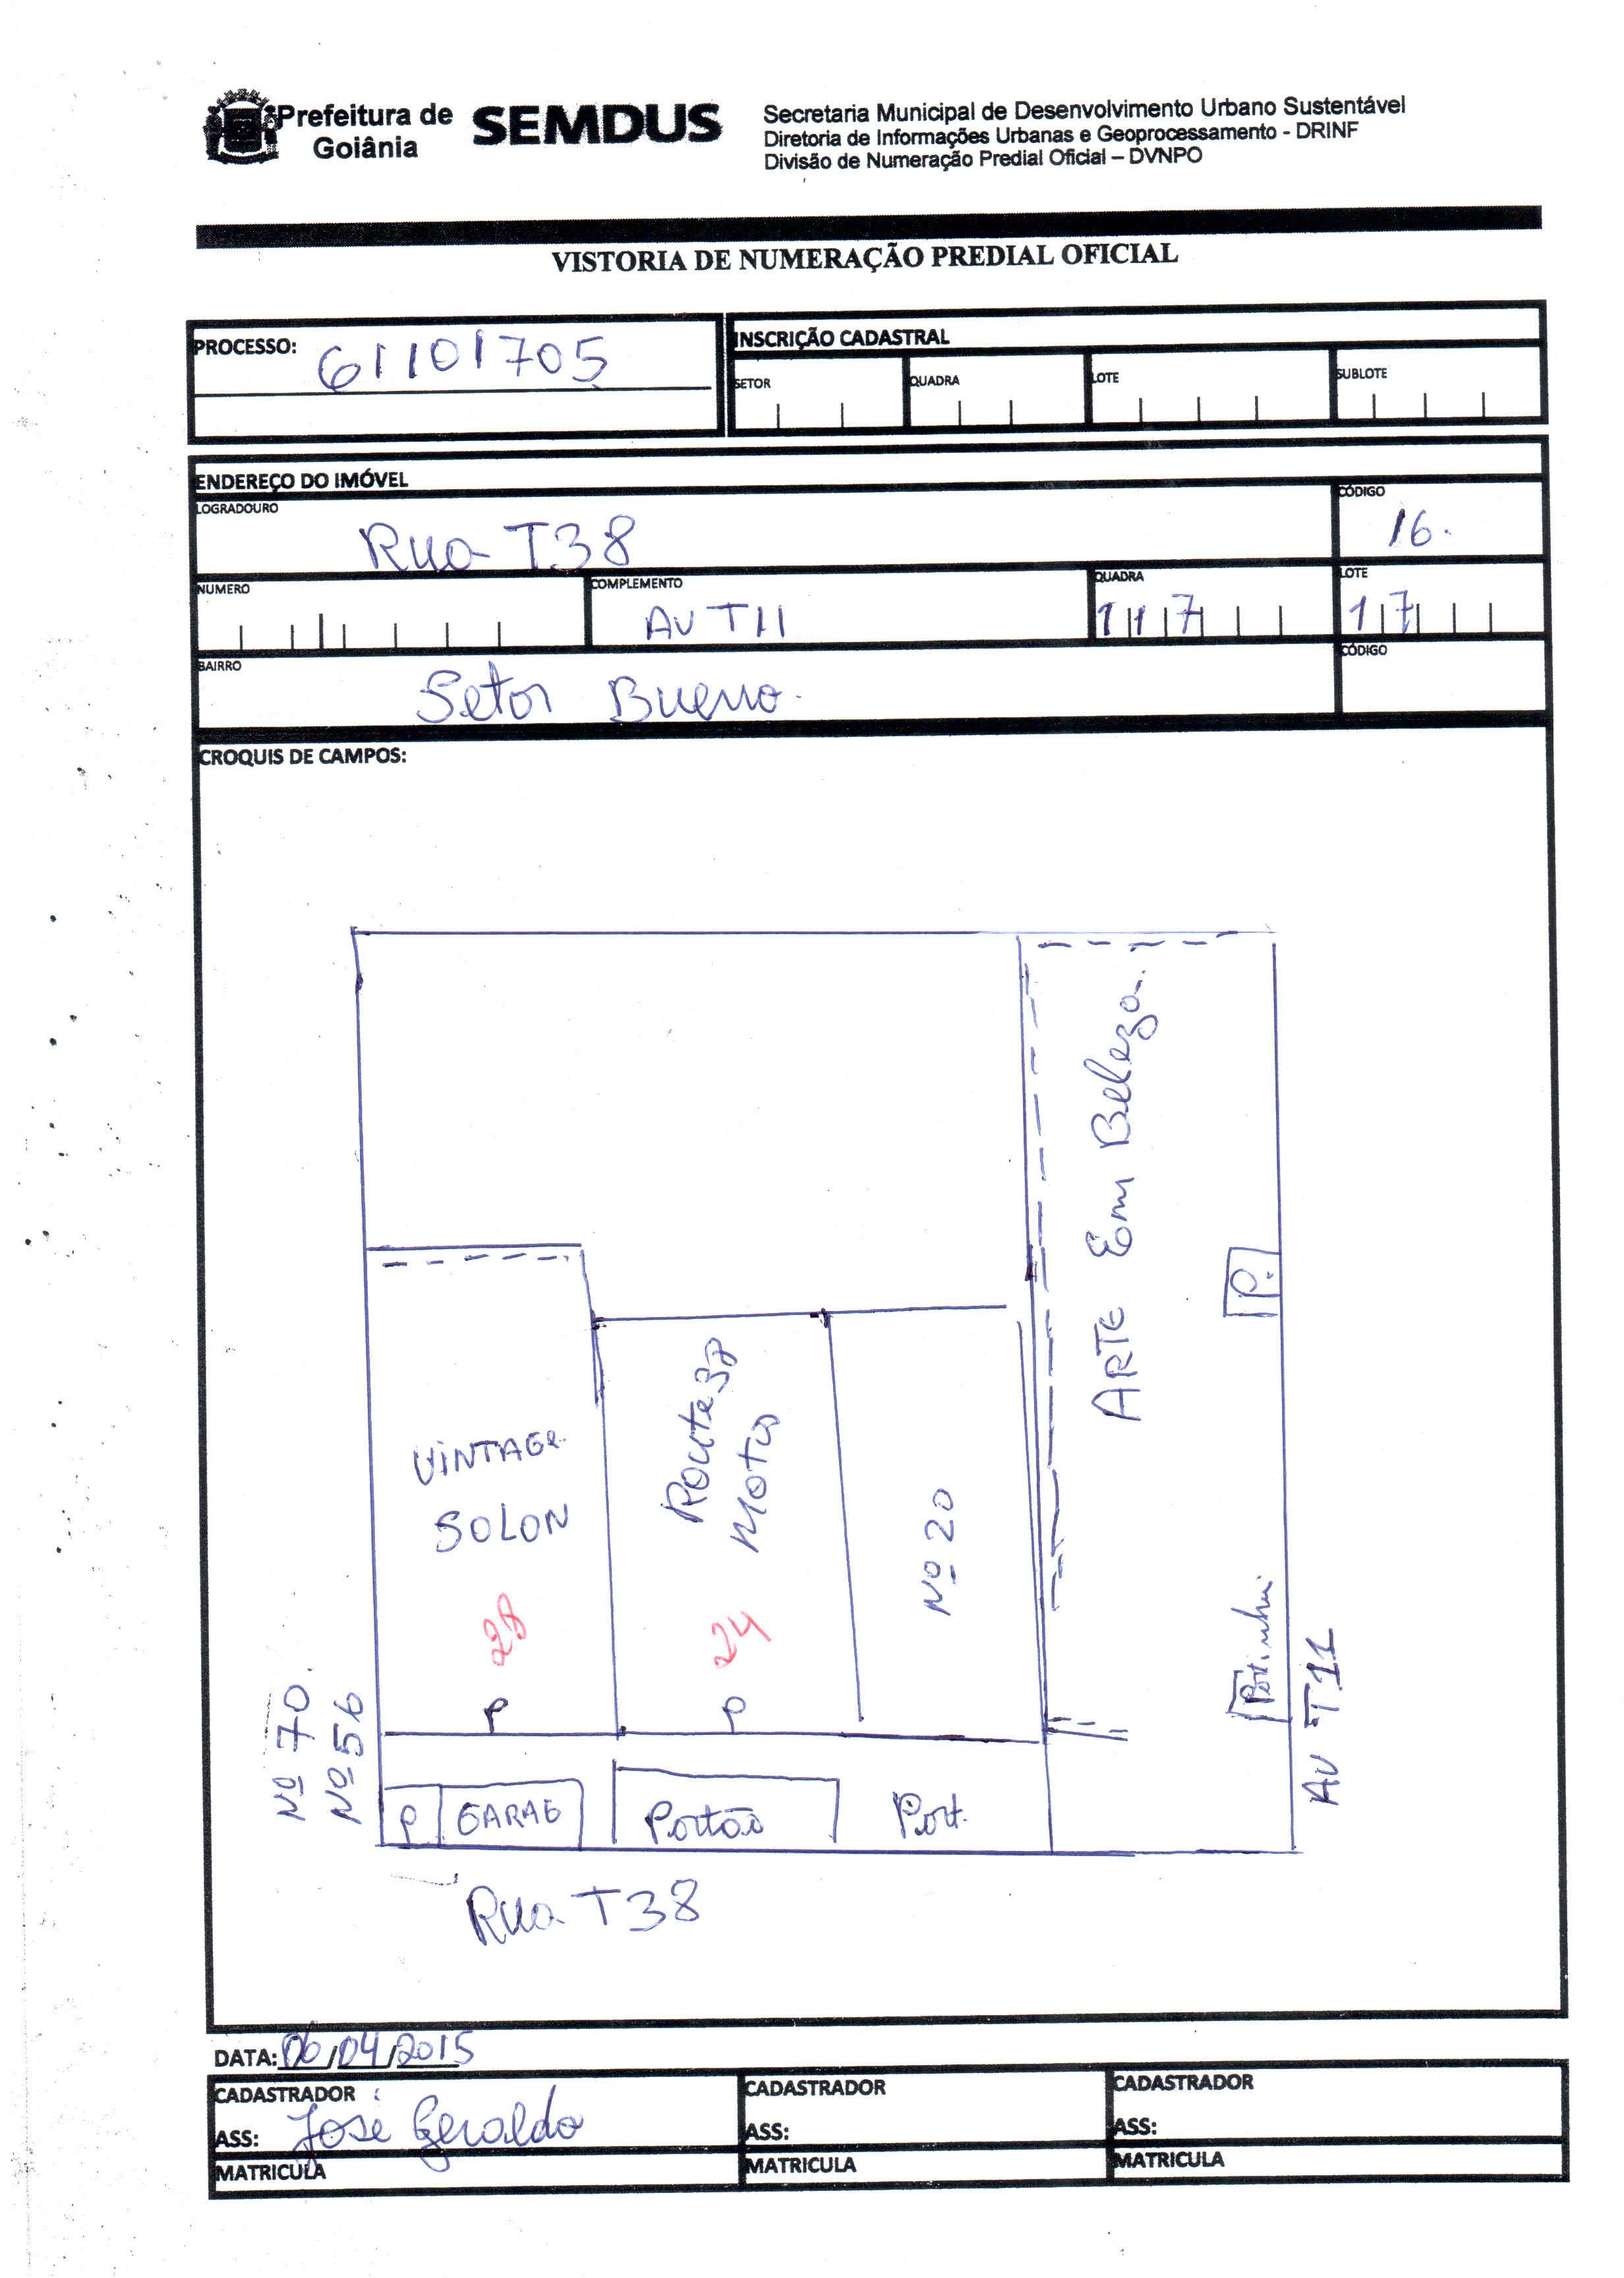 Prefeitura de
Goiânia
SEMDUS
Secretaria Municipal de Desenvolvimento Urbano Sustentável
Diretoria de Informações Urbanas e Geoprocessamento - DRINF
Divisão de Numeração Predial Oficial – DVNPO
VISTORIA DE NUMERAÇÃO PREDIAL OFICIAL
PROCESSO: 61101705
INSCRIÇÃO CADASTRAL
SETOR QUADRA LOTE SUBLOTE
ENDEREÇO DO IMÓVEL
LOGRADOURO Rua T38
CÓDIGO 16.
NUMERO
COMPLEMENTO AV T11
QUADRA 117
LOTE 17
BAIRRO Setor Bueno.
CÓDIGO
CROQUIS DE CAMPOS:
ARTE Em Beleza.
P.
VINTAGE
SOLON
28
P
Route
Motos
24
P
Nº 20
Nº 70.
Nº 56
P GARAG
Portão
Port.
AV T11
Rua T38
DATA: 06/04/2015
CADASTRADOR
ASS: José Geraldo
MATRICULA
CADASTRADOR
ASS:
MATRICULA
CADASTRADOR
ASS:
MATRICULA